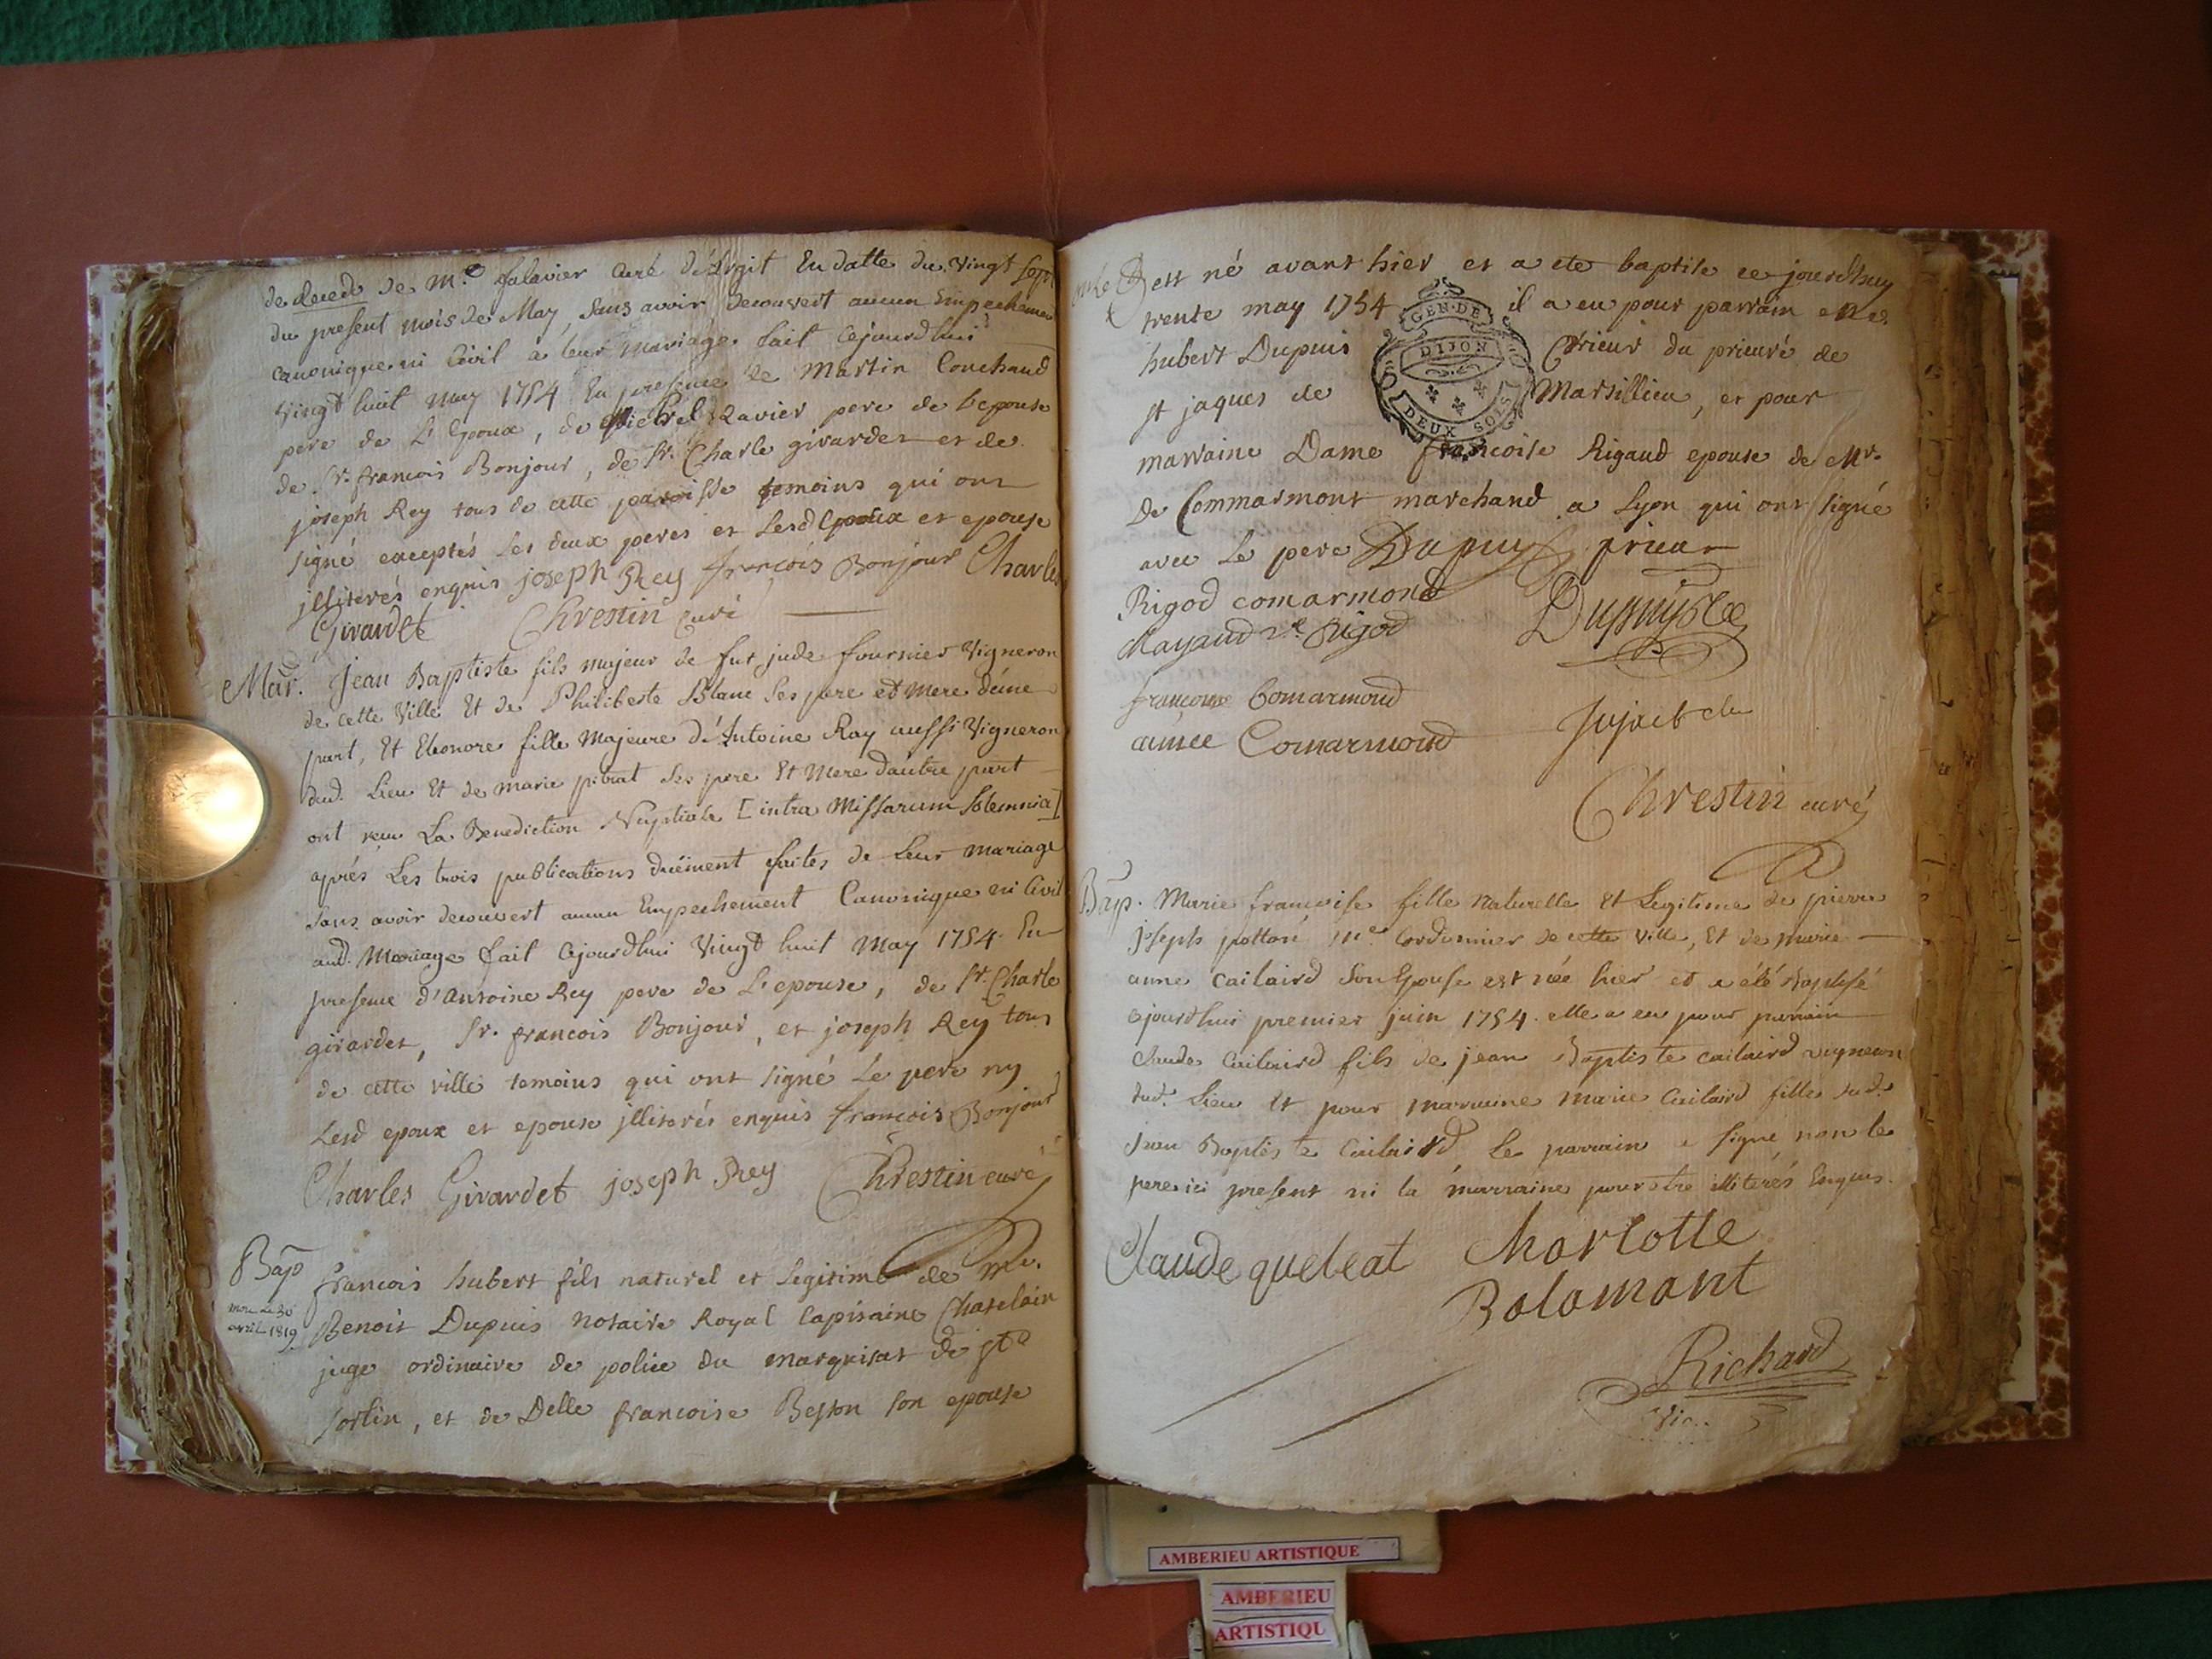 de recede de Mre falavier curé d'Argit En datte du vingt sept
du present mois de May, sans avoir decouvert aucun Empechement
canonique ni Civil a leur mariage fait cejourdhui
vingt huit may 1754 En presence de Martin Couchaud
pere de L'Epoux, de Michel Ravier pere de lepouse
de Sr. francois Bonjour, de Sr. Charle girardet et de
joseph Rey tous de cette paroisse temoins qui ont
signé exceptés les deux peres et lesd Epoux et epouse
jlliterés enquis joseph Rey françois Bonjour Charles
Girardet Chrestin curé
Mar. Jean Baptiste fils majeur de fut jude fournier Vigneron
de cette Ville Et de Philiberte Blanc ses pere et mere d'une
part, Et Eleonore fille Majeure d'Antoine Ray aussi Vigneron
dud. Lieu Et de marie pitrat ses pere Et Mere dautre part
ont recu La Benediction Nuptiale [intra Missarum Solemnia]
aprés Les trois publications duëment faites de Leur mariage
sans avoir decouvert aucun Empechement Canonique ni Civil
aud. Mariage fait cejourdhui Vingt huit May 1754. En
presence d'Antoine Rey pere de L'epouse, de Sr. Charle
girardet, Sr. francois Bonjour, et joseph Rey tous
de cette ville temoins qui ont signé Le pere ny
Lesd epoux et epouse jlliterés enquis francois Bonjour
Charles Girardet joseph Rey Chrestin curé
Bap francois hubert fils naturel et legitime de Me.
mort Le 30
avril 1819
Benoit Dupuis notaire Royal Capitaine Chatelain
juge ordinaire de police du marquisat de St
sorlin, et de Delle francoise Besson son epouse
est né avant hier et a ete baptise ce jourdhuy
trente may 1754 il a eu pour parrain Me.
GEN. DE
DIJON
DEUX SOLS
hubert Dupuis Prieur du prieuré de
St jaques de Marsillieu, et pour
marraine Dame francoise Rigaud epouse de Mr.
De Commarmont marchand a Lyon qui ont signé
avec Le pere Dupuy prieur
Rigod comarmond Dupuis
Mayaud ve Rigod
françoise Comarmond
aimée Comarmond
Chrestin curé
Bap. Marie francoise fille naturelle Et Legitime de pierre
joseph pottoré Me. Cordonnier de cette Ville, Et de marie
anne Cailaird son Epouse est née hier et a été Baptisé
cejourdhui premier juin 1754. elle a eu pour parrain
claude Cailaird fils de jean Baptiste cailaird vigneron
dud. Lieu Et pour marraine Marie Cailaird fille dud.
Jean Baptiste Cailaird Le parrain a signé non le
pere ici present ni la marraine pour etre illiterés Enquis.
Claude queleat Charlotte
Bolomont
Richard
Vic.
AMBERIEU ARTISTIQUE
AMBERIEU
ARTISTIQU